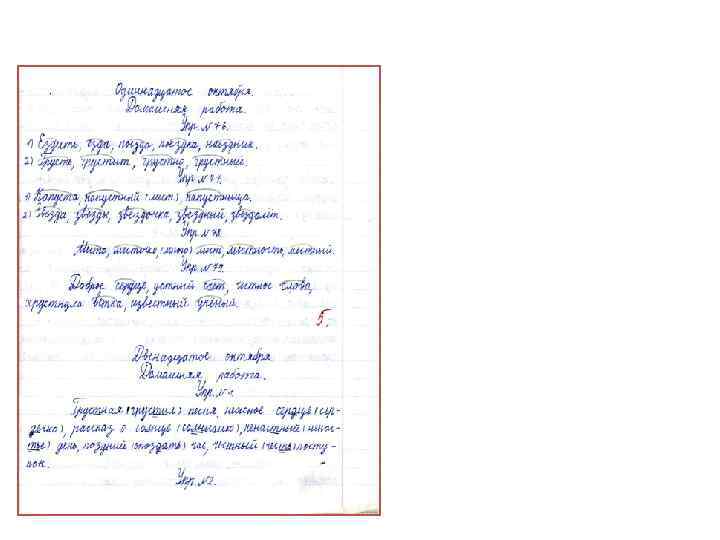 Одиннадцатое октября.
Домашняя работа.
Упр. №76.
1) Ездить, езда, поезда, поездка, наездник.
2) Грусть, грустить, грустно, грустный.
Упр. №77.
1) Капуста, капустный (лист), капустница.
2) Звезда, звёзды, звёздочка, звёздный, звездолёт.
Упр. №78.
Место, местечко, (много) мест, местность, местный.
Упр. №79.
Доброе сердце, устный счёт, честное слово,
хрустнула ветка, известный учёный.
5.
Двенадцатое октября.
Домашняя работа.
Упр. №1.
Грустная (грустить) песня, нежное сердце (сер-
дечко), рассказ о солнце (солнышко), ненастный (ненас-
тье) день, поздний (опоздать) час, честный (честь) посту-
пок.
Упр. №2.